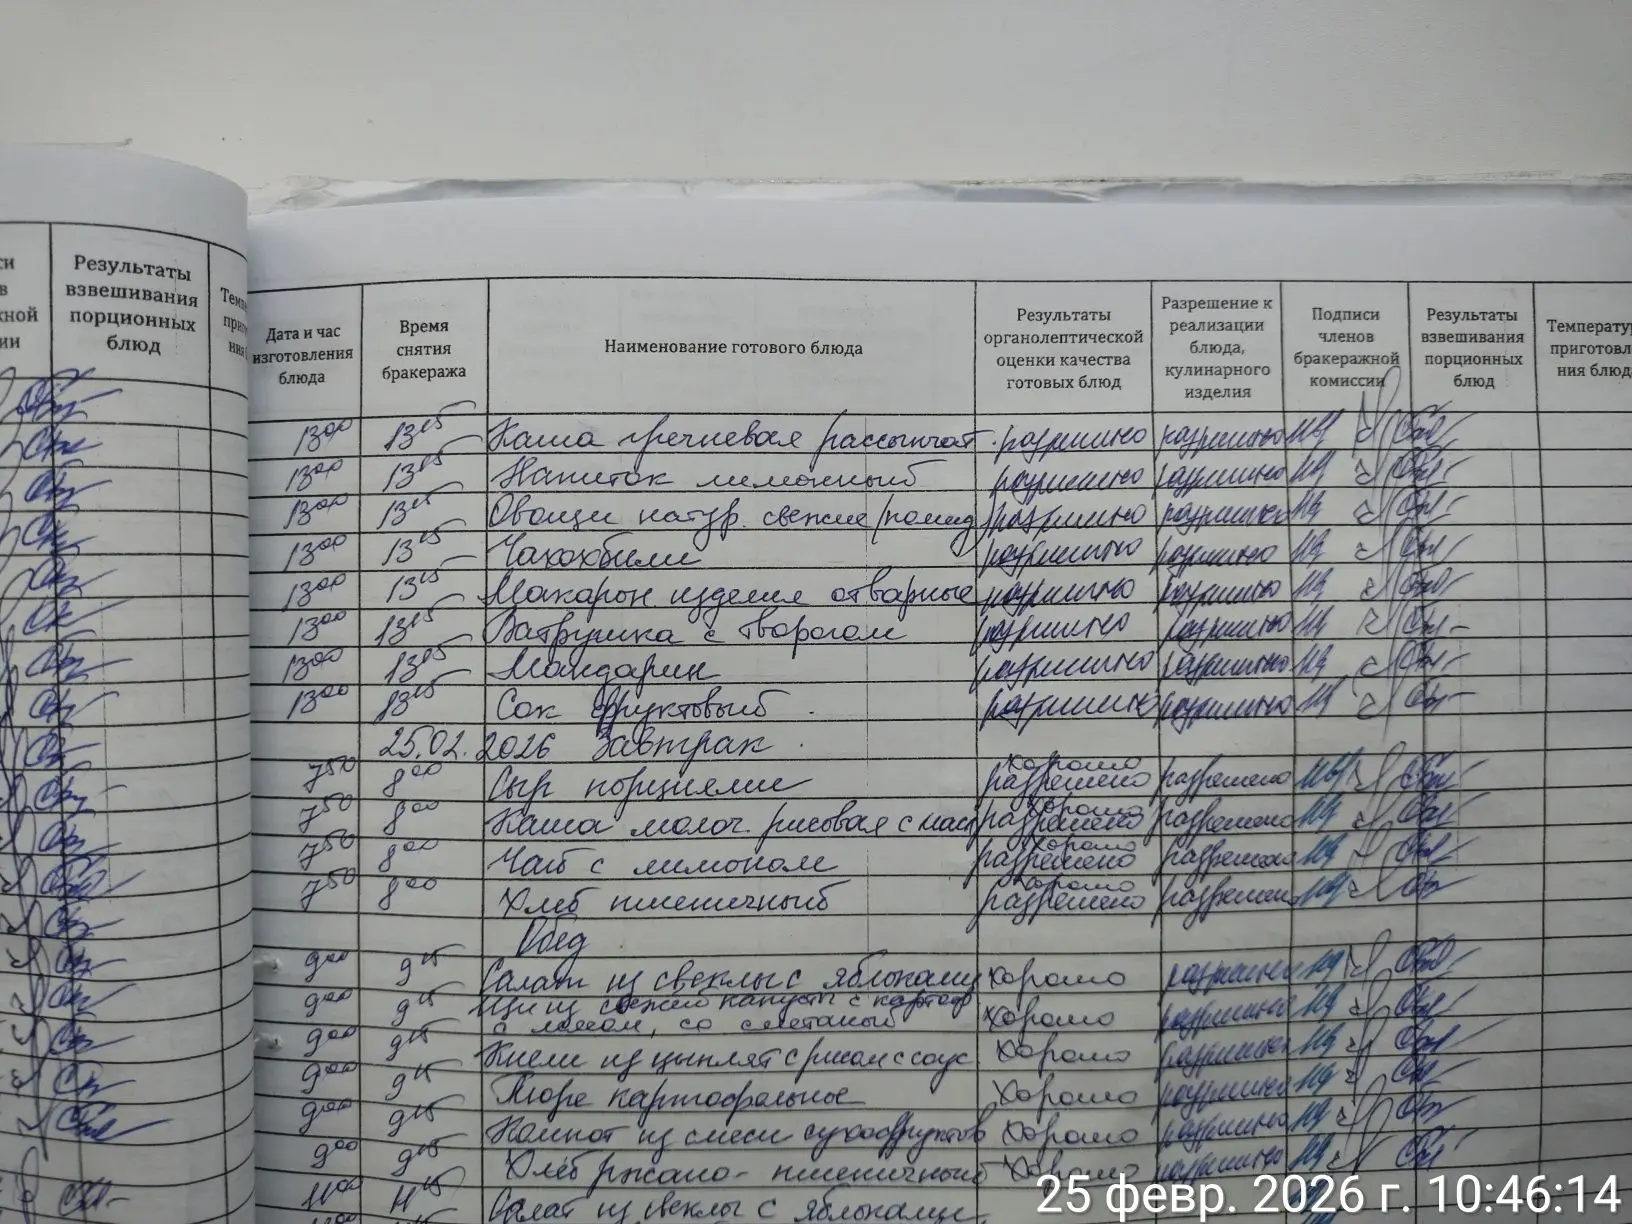 Результаты взвешивания порционных блюд
Дата и час изготовления блюда
Время снятия бракеража
Наименование готового блюда
Результаты органолептической оценки качества готовых блюд
Разрешение к реализации блюда, кулинарного изделия
Подписи членов бракеражной комиссии
Результаты взвешивания порционных блюд
Температур
приготовл
ния блюд
13 00 13 15 Каша гречневая рассыпчат. разрешено разрешено
13 00 13 15 Напиток лимонный разрешено разрешено
13 00 13 15 Овощи натур. свежие (помид) разрешено разрешено
13 00 13 15 Чахохбили разрешено разрешено
13 00 13 15 Макарон изделия отварные разрешено разрешено
13 00 13 15 Ватрушка с творогом разрешено разрешено
13 00 13 15 Мандарин разрешено разрешено
13 00 13 15 Сок фруктовый разрешено разрешено
25.02.2026 Завтрак
7 50 8 00 Сыр порциями хорошо разрешено разрешено
7 50 8 00 Каша молоч. рисовая с мас хорошо разрешено разрешено
7 50 8 00 Чай с лимоном хорошо разрешено разрешено
7 50 8 00 Хлеб пшеничный хорошо разрешено разрешен
Обед
9 00 9 15 Салат из свеклы с яблоками хорошо разрешено
9 00 9 15 Щи из свежей капусты с картоф хорошо разрешено
с мясом, со сметаной
9 00 9 15 Кнели из цыплят с рисом с соус хорошо разрешено
9 00 9 15 Пюре картофельное хорошо разрешено
9 00 9 15 Компот из смеси сухофруктов хорошо разрешено
9 00 9 15 Хлеб ржано-пшеничный хорошо разрешено
11 00 11 15 Салат из свеклы с яблоками
25 февр. 2026 г. 10:46:14